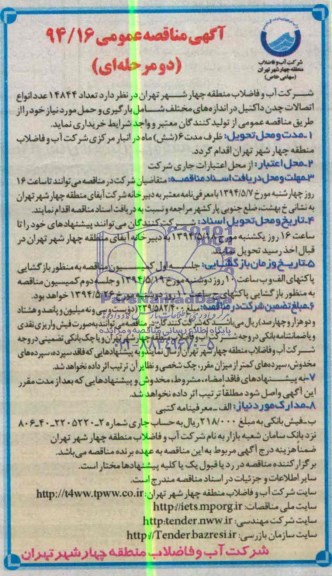 آگهی مناقصه عمومی ۹۴/۱۶
(دو مرحله‌ای)
شرکت آب و فاضلاب
منطقه چهار شهر تهران
(سهامی خاص)
شرکت آب و فاضلاب منطقه چهار شهر تهران در نظر دارد تعداد ۱۴۸۴۴ عدد انواع
اتصالات چدن داکتیل در اندازه‌های مختلف شامل بارگیری و حمل مورد نیاز خود را از
طریق مناقصه عمومی از تولید کنندگان معتبر و واجد شرایط خریداری نماید.
۱-مدت و محل تحویل: ظرف مدت ۶ (شش) ماه در انبار مرکزی شرکت آب و فاضلاب
منطقه چهار شهر تهران اقدام گردد.
۲-محل اعتبار: از محل اعتبارات جاری شرکت
۳-مهلت و محل دریافت اسناد مناقصه: متقاضیان شرکت در مناقصه می‌توانند تا ساعت ۱۶
روز چهارشنبه مورخ ۱۳۹۴/۵/۷ با معرفی نامه معتبر به دبیر خانه شرکت آبفای منطقه چهار شهر تهران
به نشانی خ بهشت، ضلع جنوبی پارکشهر مراجعه و نسبت به دریافت اسناد مناقصه اقدام نمایند.
۴-تاریخ و محل تحویل اسناد: شرکت کنندگان می توانند پیشنهادهای خود را تا
ساعت ۱۶ روز یکشنبه مورخ ۱۳۹۴/۵/۱۸ به دبیر خانه آبفای منطقه چهار شهر تهران در
قبال اخذ رسید تحویل نمایند.
۵-تاریخ و زمان بازگشایی: جلسه اول کمیسیون مناقصه به منظور بازگشایی
پاکتهای الف وب ساعت ۱۰ روز دوشنبه مورخ ۱۳۹۴/۵/۱۹ و جلسه دوم کمیسیون مناقصه
به منظور بازگشایی پاکتهای ۱۳۹۴ خواهد بود.
۶-مبلغ تضمین شرکت در مناقصه: مبلغ میلیون و پانصد و هشتاد
و دو هزار و چهارصد) ریال می بصورت فیش واریزی نقدی
و یا ضمانتنامه بانکی در وجه شهر تهران و یا چک بانکی تضمینی در وجه
شرکت آب و فاضلاب منطقه چهار شهر تهران به پیشنهادهای که فاقد سپرده، سپرده‌های
مخدوش، سپرده‌های کمتر از میزان مقرر، چک شخصی و نظایر آن ترتیب اثر داده نخواهد شد.
۷-به پیشنهادهای فاقد امضاء، مشروط، مخدوش و پیشنهادهایی که بعد از مدت مقرر
این آگهی واصل شود مطلقا ترتیب اثر داده نخواهد شد.
۸-مدارک مورد نیاز: الف ـ معرفینامه کتبی
ب ـ فیش بانکی به مبلغ ۲۱۸/۰۰۰ ریال به حساب جاری شماره ۲-۲۲۰۵۲۲۰-۴۰-۸۰۶
نزد بانک سامان شعبه بازار به نام شرکت آب و فاضلاب منطقه چهار شهر تهران
ضمنا هزینه درج آگهی مربوط به این مناقصه به عهده برنده مناقصه می‌باشد.
برگزار کننده مناقصه در رد یا قبول یک یا کلیه پیشنهادها مختار است.
سایر اطلاعات و جزئیات در اسناد مناقصه مندرج است.
سایت شرکت آب و فاضلاب منطقه چهار شهر تهران: http://t4ww.tpww.co.ir
سایت ملی مناقصات: http://iets.mporg.ir
سایت شرکت مهندسی: http:tender.nww.ir
سایت سازمان بازرسی: http://Tender.bazresi.ir
شرکت آب و فاضلاب منطقه چهار شهر تهران